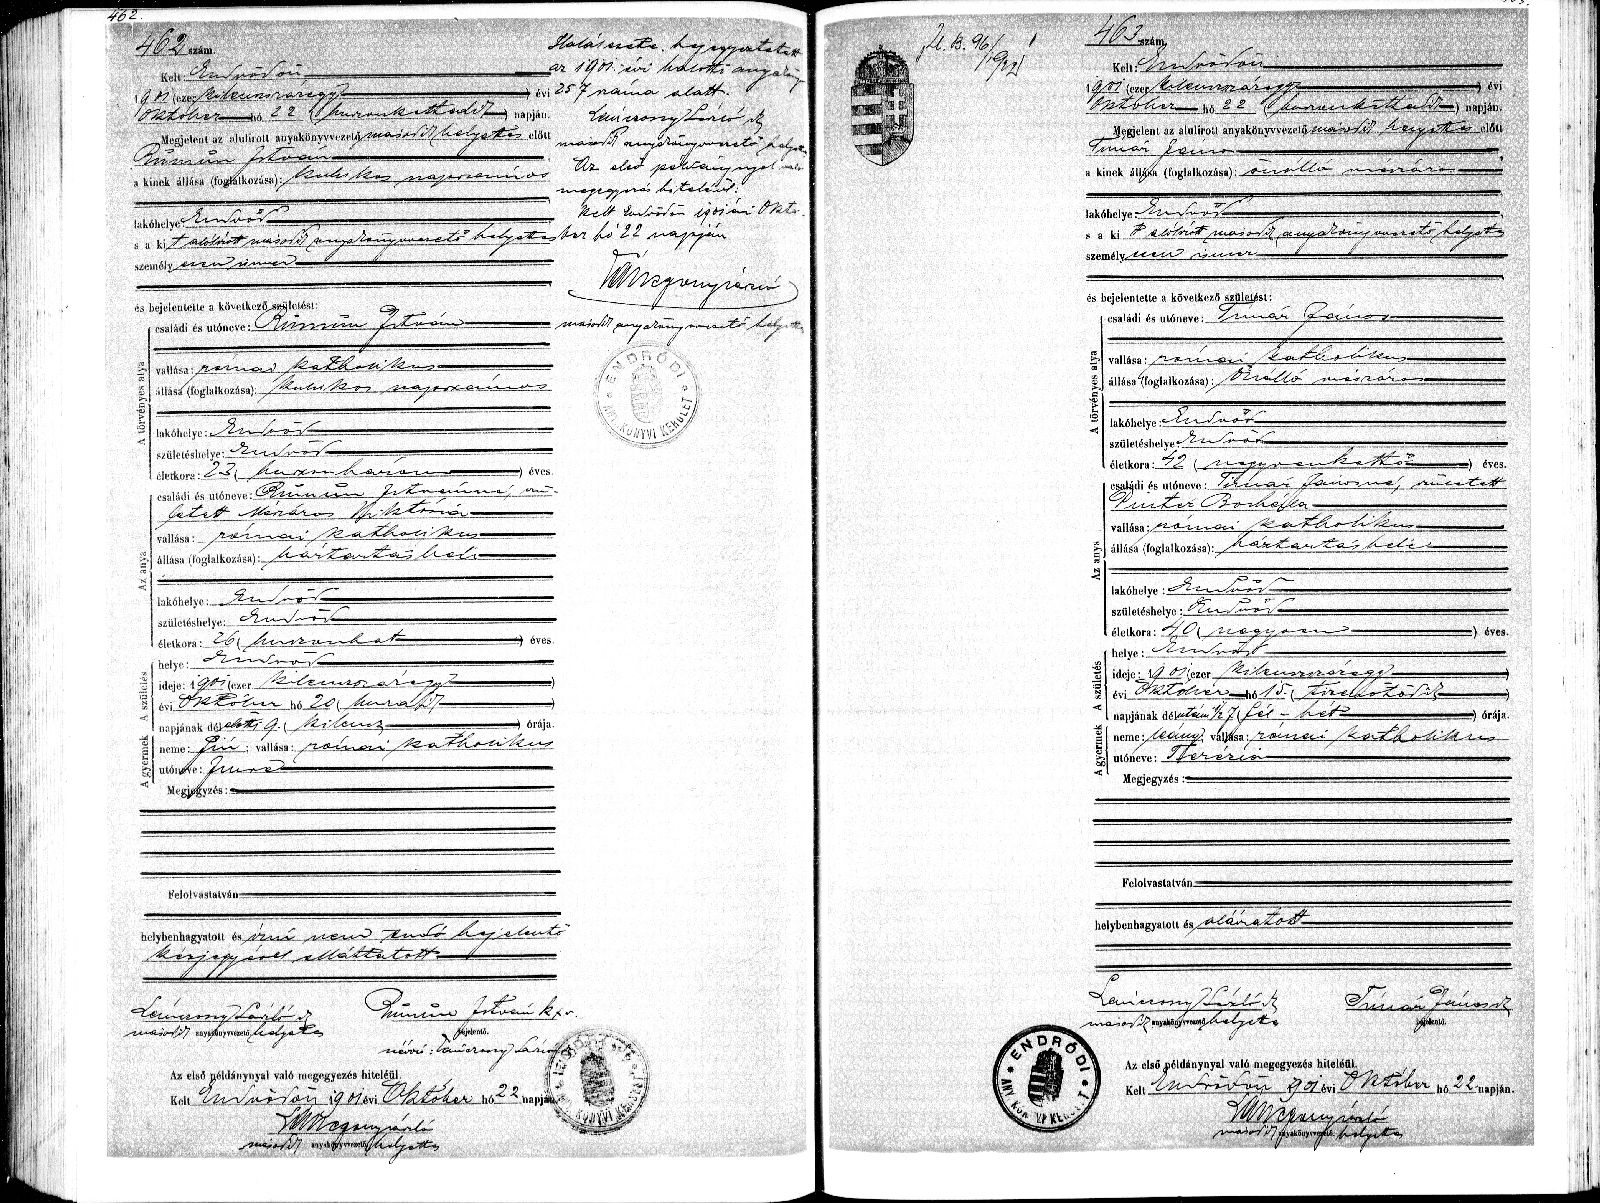 462.
462 szám.
Kelt: Endrődön
1901 (ezer kilenczszázegy) évi
Október hó 22 (huszonkettedik) napján.
Megjelent az alulirott anyakönyvvezető második helyettes előtt
István
a kinek állása (foglalkozása): kubikos napszámos
lakóhelye Endrőd
s a kit alólirott második anyakönyvvezető helyettes
személyesen ismer
és bejelentette a következő születést:
A törvényes atya
családi és utóneve: István
vallása: római katholikus
állása (foglalkozása): kubikos napszámos
lakóhelye: Endrőd
születéshelye: Endrőd
életkora: 23 (huszonhárom) éves.
Az anya
családi és utóneve: Istvánné, szü-
letett Mészáros Viktória
vallása: római katholikus
állása (foglalkozása): háztartásbeli
lakóhelye: Endrőd
születéshelye: Endrőd
életkora: 26 (huszonhat) éves.
A születés
helye: Endrőd
ideje: 1901 (ezer kilenczszázegy)
évi Október hó 20 (huszadik)
napjának délelőtti 9. (kilencz) órája.
A gyermek
neme: fiú; vallása: római katholikus
utóneve:
Megjegyzés:
Felolvastatván
helybenhagyatott és írni nem tudó bejelentő
kézjegyével elláttatott
Lánczony László
második anyakönyvvezető helyettes
István
bejelentő.
névíró: Lánczony László
Az első példánynyal való megegyezés hiteléül.
Kelt Endrődön 1901 évi Október hó 22 napján
második anyakönyvvezető helyettes
Halálesete bejegyeztetett
az 1901. évi halotti anyakönyv
257 száma alatt.
Lánczony László
második anyakönyvvezető helyettes
Az első példánynyal való
megegyezés hiteléül.
Kelt Endrődön 1901 évi Októ-
ber hó 22 napján
második anyakönyvvezető helyettes
ENDRŐDI ANYAKÖNYVI KERÜLET
ENDRŐDI ANYAKÖNYVI KERÜLET
463 szám.
Kelt: Endrődön
1901 (ezer kilenczszázegy) évi
Október hó 22 (huszonkettedik) napján.
Megjelent az alulirott anyakönyvvezető második helyettes előtt
Tímár János
a kinek állása (foglalkozása): önálló mészáros
lakóhelye Endrőd
s a kit alólirott második anyakönyvvezető helyettes
személyesen ismer
és bejelentette a következő születést:
A törvényes atya
családi és utóneve: Tímár János
vallása: római katholikus
állása (foglalkozása): Önálló mészáros
lakóhelye: Endrőd
születéshelye: Endrőd
életkora: 42 (negyvenkettő) éves.
Az anya
családi és utóneve: Tímár Jánosné, született
Pintér Borbála
vallása: római katholikus
állása (foglalkozása): háztartásbeli
lakóhelye: Endrőd
születéshelye: Endrőd
életkora: 40 (negyven) éves.
A születés
helye: Endrőd
ideje: 1901 (ezer kilenczszázegy)
évi Október hó 15. (tizenötödik)
napjának délutáni 1/2 7 (fél-hét) órája.
A gyermek
neme: leány; vallása: római katholikus
utóneve: Therézia
Megjegyzés:
Felolvastatván
helybenhagyatott és aláíratott
Lánczony László
második anyakönyvvezető helyettes
Tímár János
bejelentő.
Az első példánynyal való megegyezés hiteléül.
Kelt Endrődön 1901 évi Október hó 22 napján.
második anyakönyvvezető helyettes
ENDRŐDI ANYAKÖNYVI KERÜLET